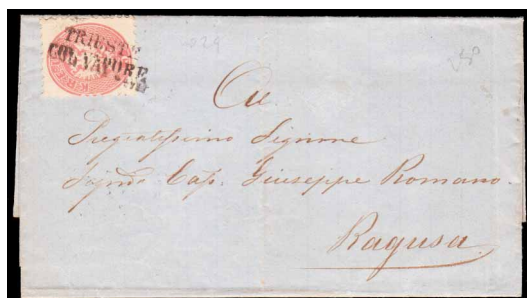 TRIEST
COL VAPORE
Pregiatissimo Signore
Signor Cap. Giuseppe Romano
Ragusa